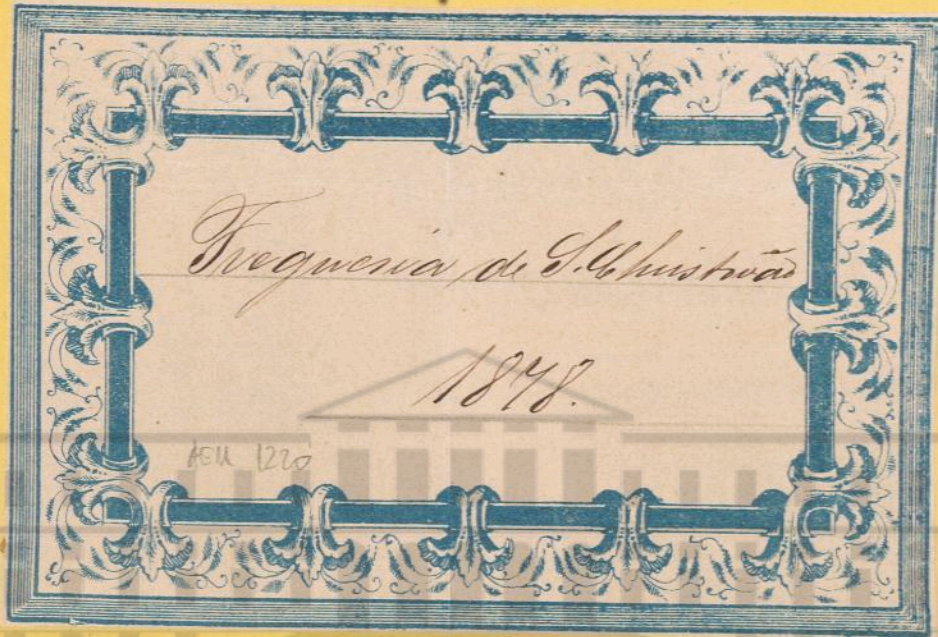 Freguesia de S. Christovão
1878.
AEM 1220